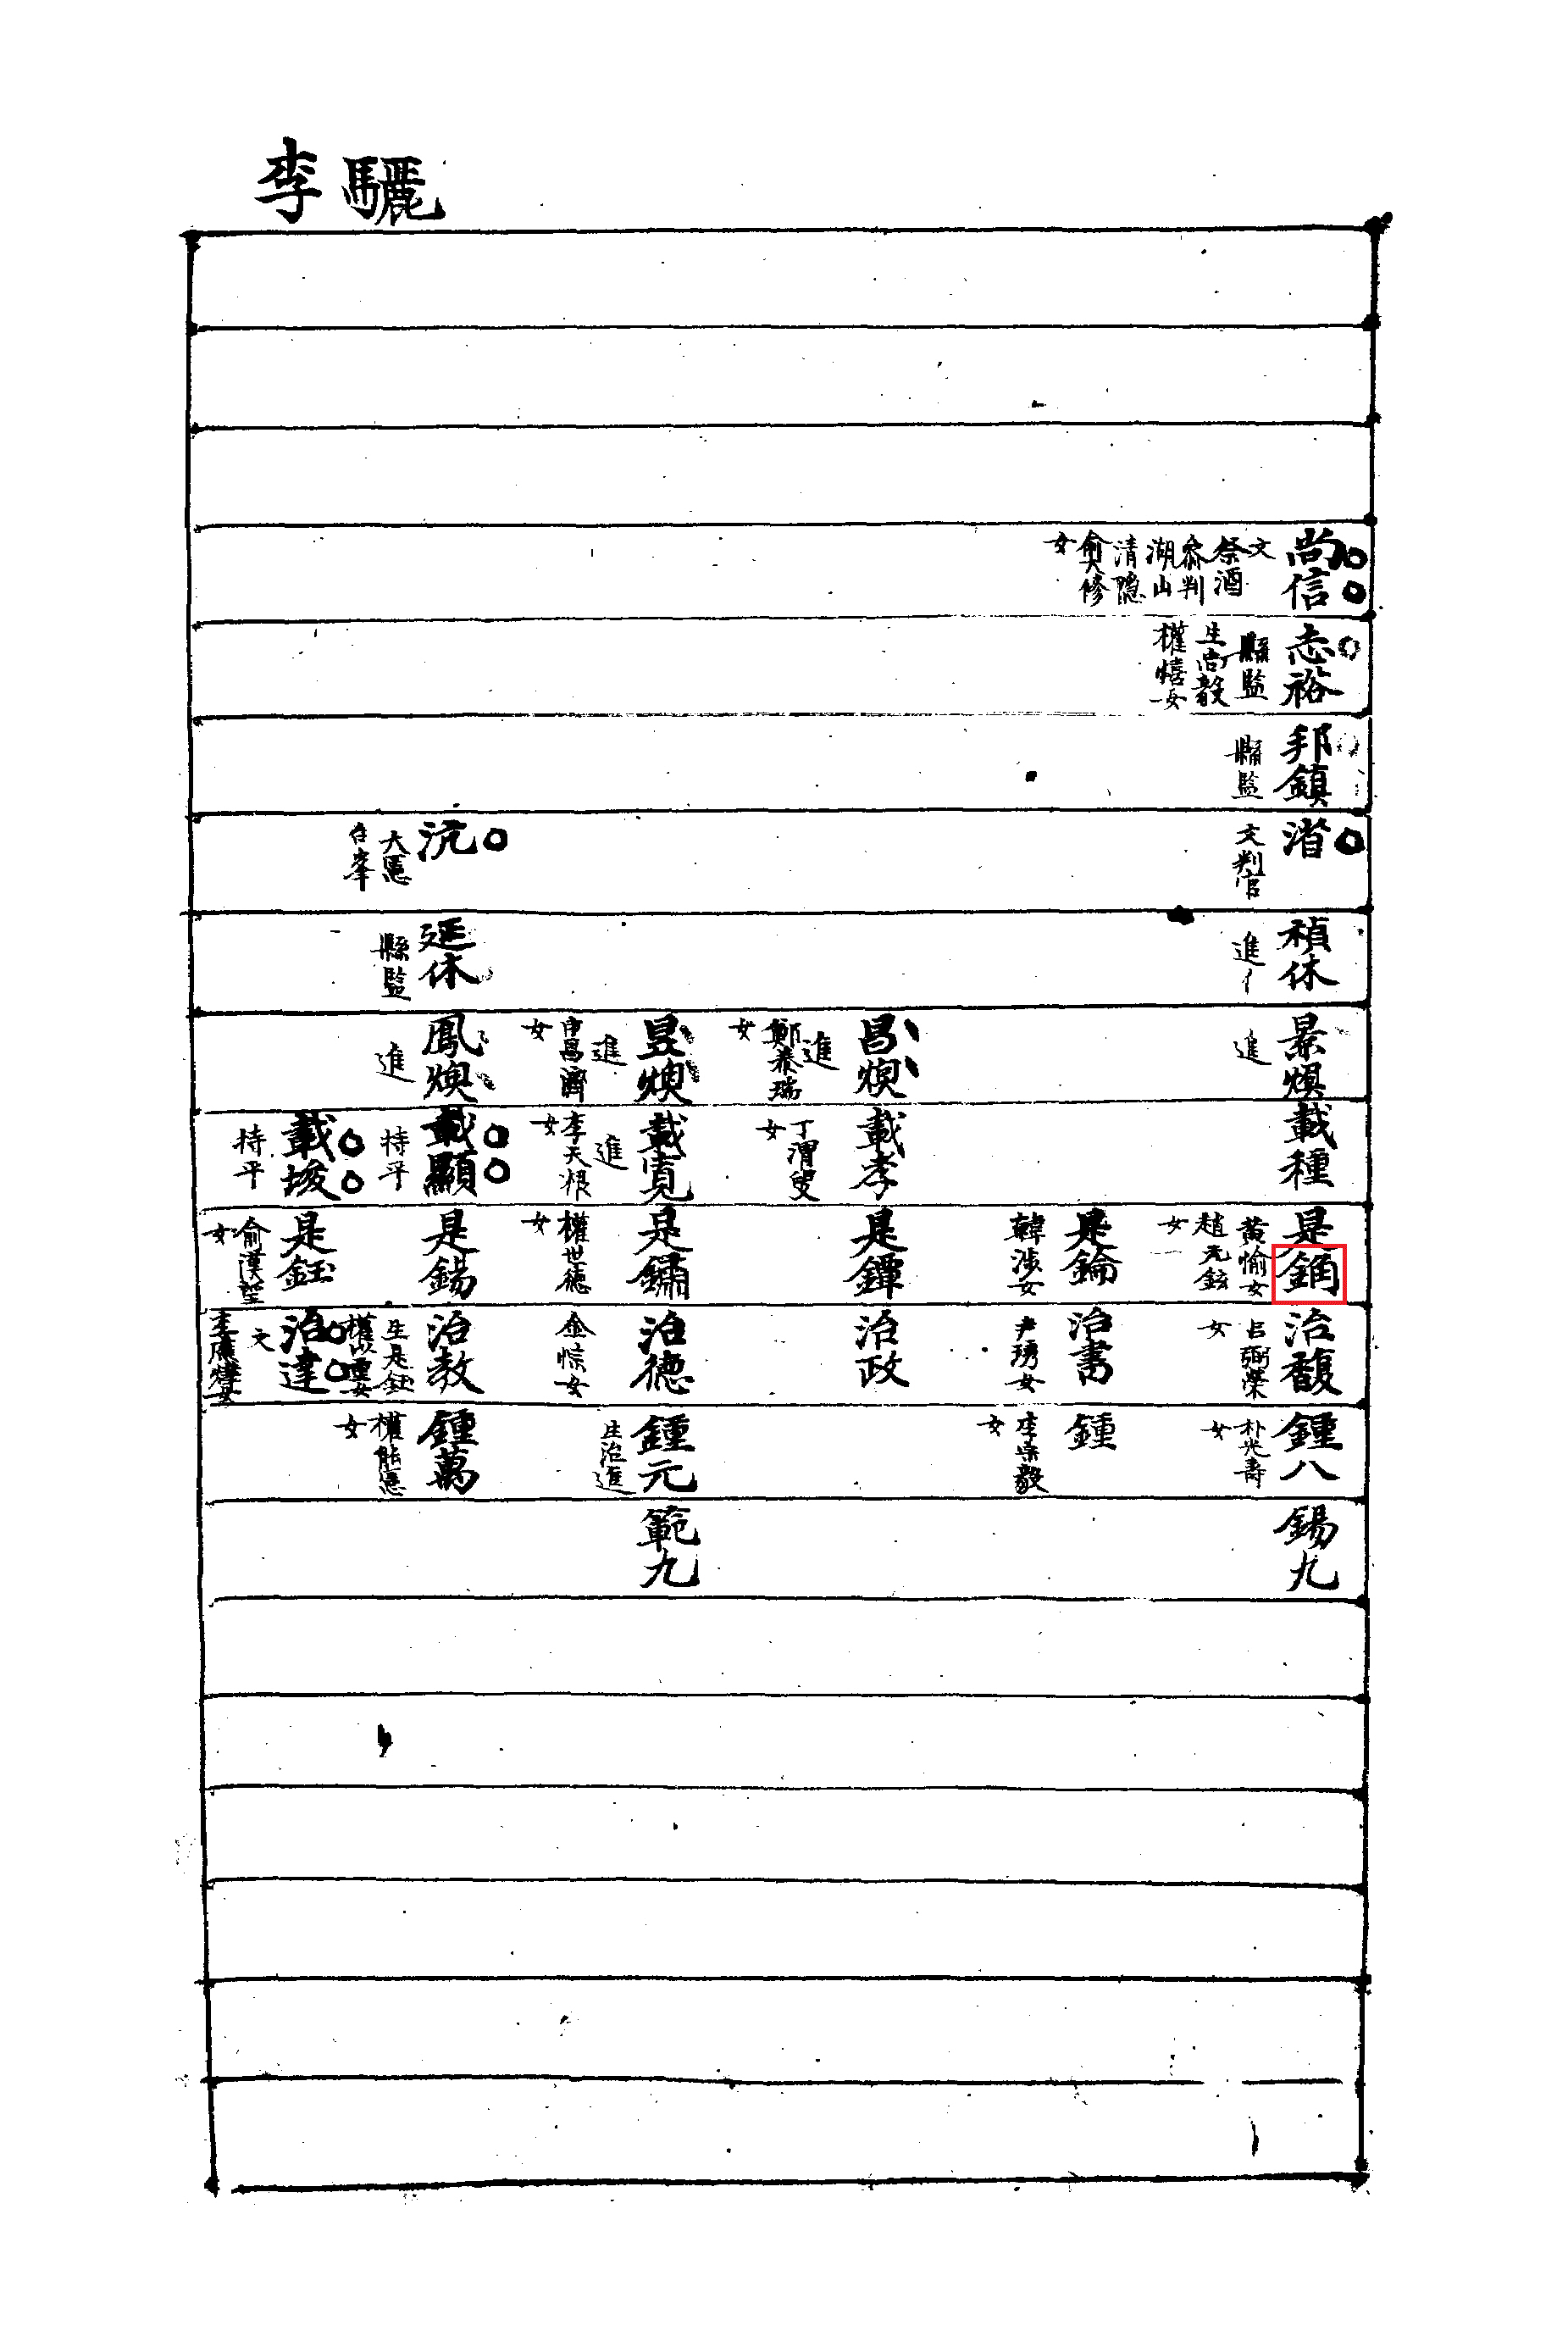 驪李
尚信
文
祭酒
參判
湖山
清隱
俞大修
女
志裕
縣監
生尚毅
權憘女
邦鎮
縣監
渻
文判官
沆
大憲
台峯
禎休
進
延休
縣監
景煥
進
昌煥
進
鄭泰瑞
女
昱煥
進
申昌濟
女
鳳煥
進
載種
載孝
丁渭叟
女
載寬
進
李天根
女
載顯
持平
載埈
持平
是
黃愉女
趙光鉉
女
是錀
韓涉女
是鐔
是鏽
權世德
女
是錫
是鈺
俞漢望
女
治馥
呂弼榮
女
治書
尹琇女
治政
治德
金悰女
治教
生是鈺
治達
文
鍾八
朴光壽
女
鍾
李宗毅
女
鍾元
生治進
鍾萬
權能憲
女
錫九
範九